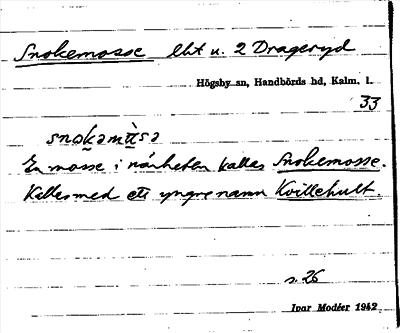 Snokemosse lht u. 2 Drageryd
Högsby sn, Handbörds hd, Kalm. l.
33
snok̬amɷ̀sa
En mosse i närheten kallas Snokemosse.
Kallas med ett yngre namn Kvillehult.
s. 26
Ivar Modéer 1942